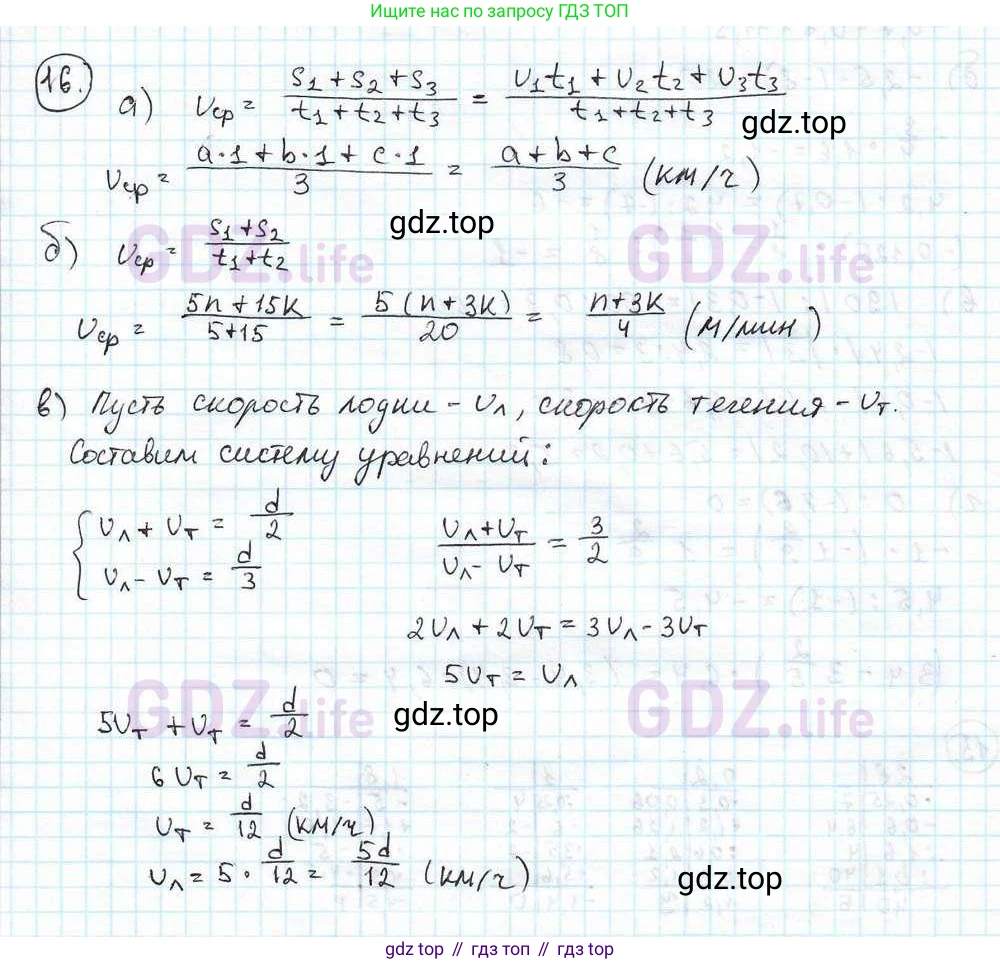 Ищите ответы по запросу ГДЗ ТОП
16.
а) υср = (s1 + s2 + s3)/(t1 + t2 + t3) = (υ1t1 + υ2t2 + υ3t3)/(t1 + t2 + t3)
gdz.top
υср = (a·1 + b·1 + c·1)/3 = (a + b + c)/3 (км/ч)
gdz.top
б) υср = (s1 + s2)/(t1 + t2)
GDZ.life GDZ.life
υср = (5n + 15k)/(5+15) = 5(n + 3k)/20 = (n+3k)/4 (м/мин)
в) Пусть скорость лодки - υл, скорость течения - υт.
Составим систему уравнений:
{ υл + υт = d/2
υл - υт = d/3
(υл + υт)/(υл - υт) = 3/2
2υл + 2υт = 3υл - 3υт
5υт = υл
GDZ.life GDZ.life
gdz.top
5υт + υт = d/2
6υт = d/2
υт = d/12 (км/ч)
υл = 5 · d/12 = 5d/12 (км/ч)
gdz.top
gdz top // гдз топ // gdz.top